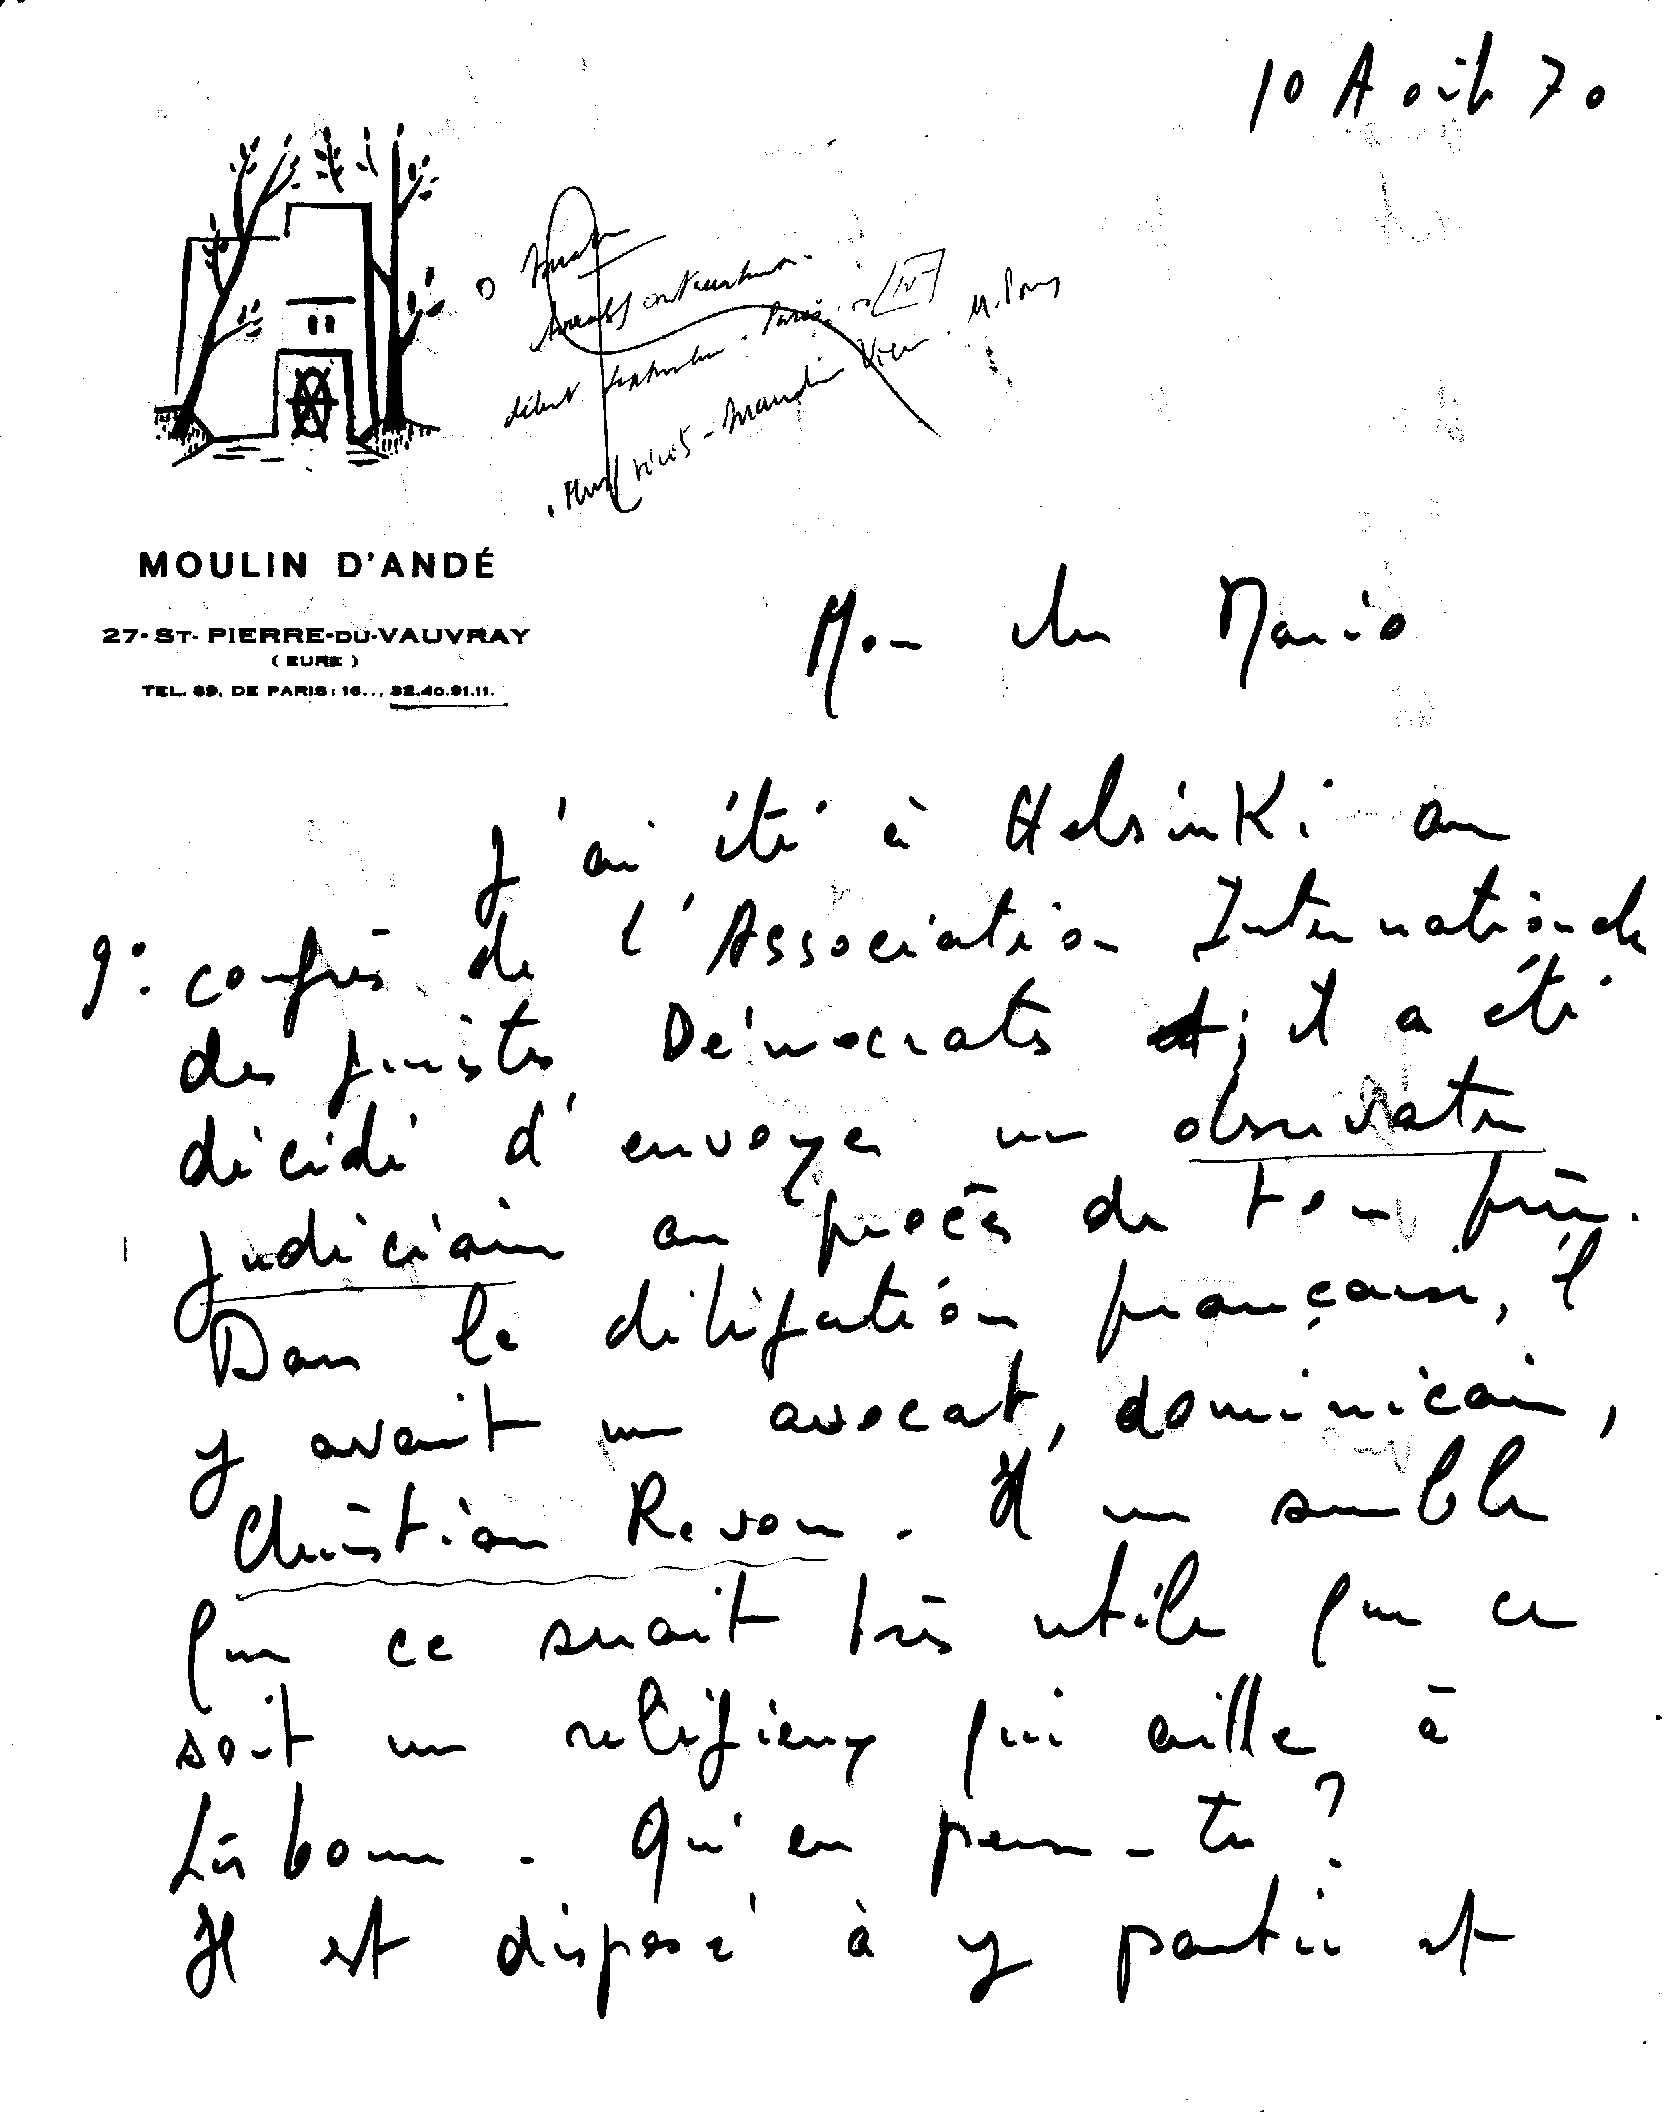 10 Août 70
début septembre. Paris.
MOULIN D'ANDÉ
27-ST-PIERRE-DU-VAUVRAY
(EURE)
TEL. 69. DE PARIS: 16... 32.40.91.11.
Mon cher Mario
J'ai été à Helsinki au
9° congrès de l'Association Internationale
des juristes Démocrates ; il a été
décidé d'envoyer un observateur
judiciaire au procès de ton frère.
Dans la délégation française, il
y avait un avocat, dominicain,
Christian Revon. Il me semble
que ce serait très utile que ce
soit un religieux qui aille à
Lisbonne. Qu'en penses-tu?
Il est disposé à y partir et